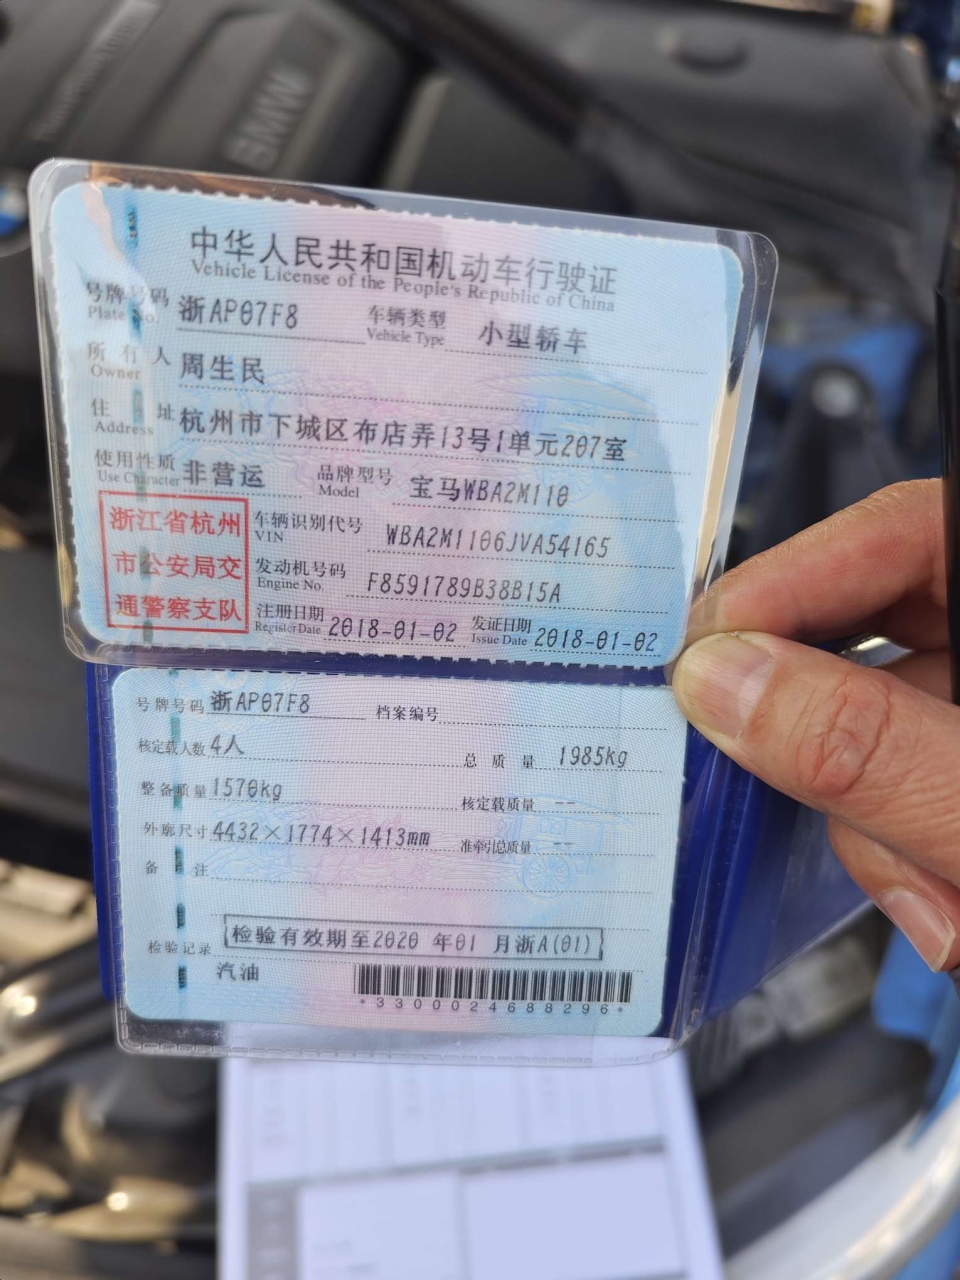 BMW
中华人民共和国机动车行驶证
Vehicle License of the People's Republic of China
号牌号码 浙AP07F8 车辆类型 小型轿车
Plate No. Vehicle Type
所有人 周生民
Owner
住址 杭州市下城区布店弄13号1单元207室
Address
使用性质 非营运 品牌型号 宝马WBA2M110
Use Character Model
浙江省杭州
市公安局交
通警察支队
车辆识别代号 WBA2M1106JVA54165
VIN
发动机号码 F8591789B38B15A
Engine No.
注册日期 2018-01-02 发证日期 2018-01-02
Register Date Issue Date
号牌号码 浙AP07F8 档案编号
核定载人数 4人 总质量 1985kg
整备质量 1570kg 核定载质量 --
外廓尺寸 4432×1774×1413mm 准牵引总质量 --
备注
检验记录 检验有效期至2020 年01 月浙A(01)
汽油
*3300024688296*